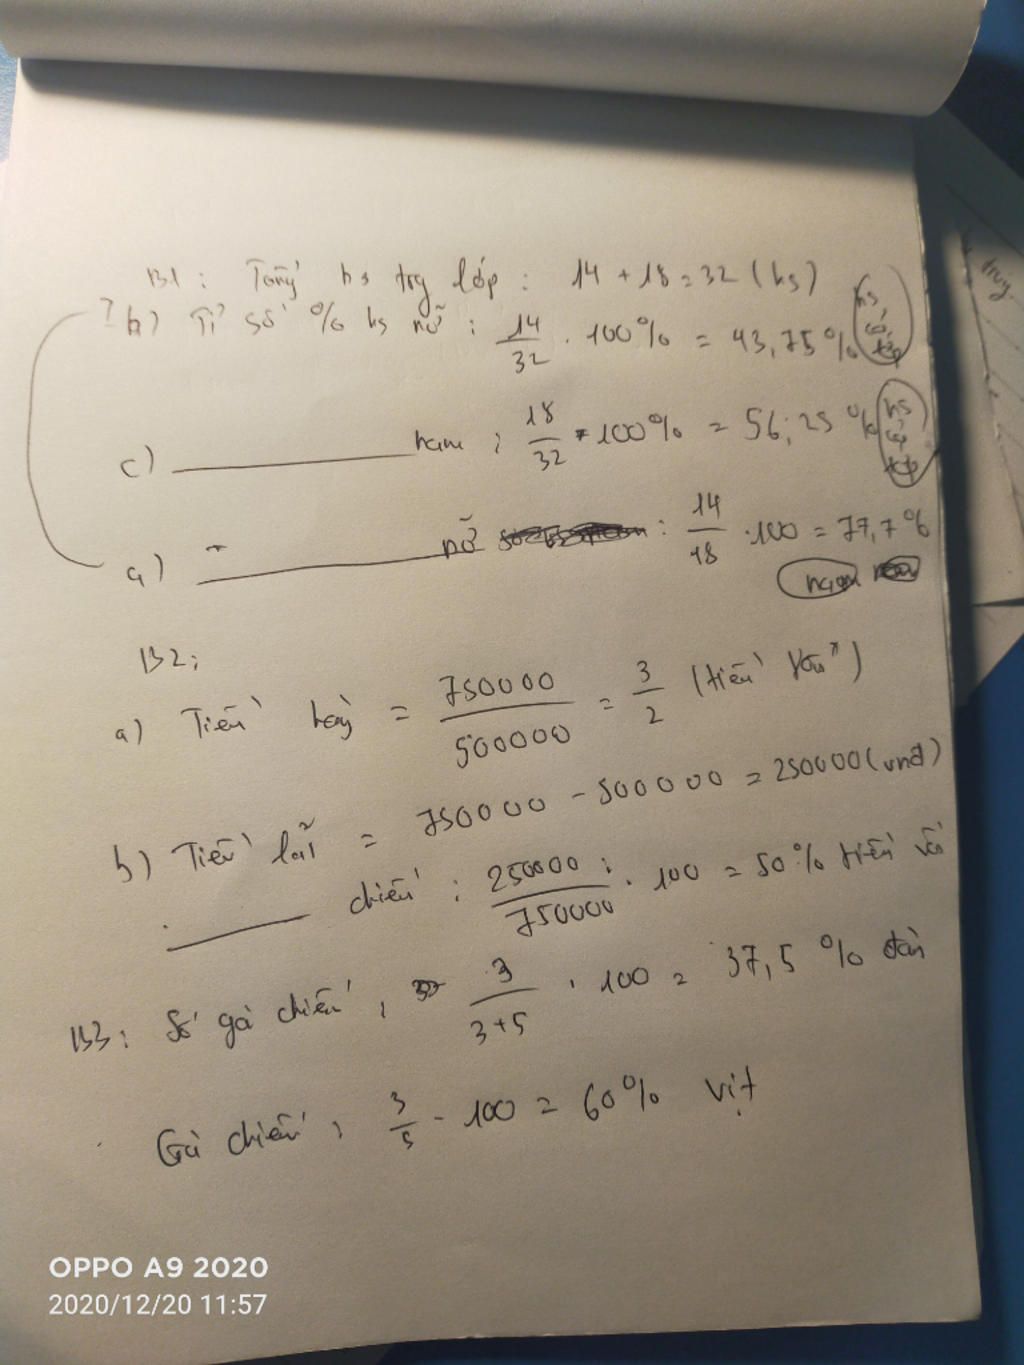 B1: Tổng hs trg lớp: 14 + 18 = 32 (hs)
? b) Tỉ số % hs nữ: 14/32 . 100% = 43,75% hs cả lớp
c) ______ nam: 18/32 . 100% = 56,25% hs cả lớp
a) ______ nữ : 14/18 . 100 = 77,7% nam
B2:
a) Tiền = 750000/500000 = 3/2 (tiền vốn)
b) Tiền lãi = 750000 - 500000 = 250000 (vnđ)
______ chiếm: 250000/750000 . 100 = 50% tiền vốn
B3: Số gà chiếm: 3/3+5 . 100 = 37,5% đàn
Gà chiếm: 3/5 . 100 = 60% vịt
trung
OPPO A9 2020
2020/12/20 11:57